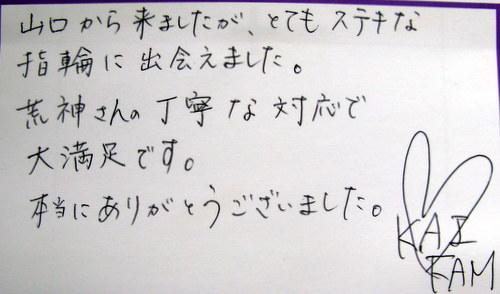 山口から来ましたが、とてもステキな
指輪に出会えました。
荒神さんの丁寧な対応で
大満足です。
本当にありがとうございました。
KAZ
KAM